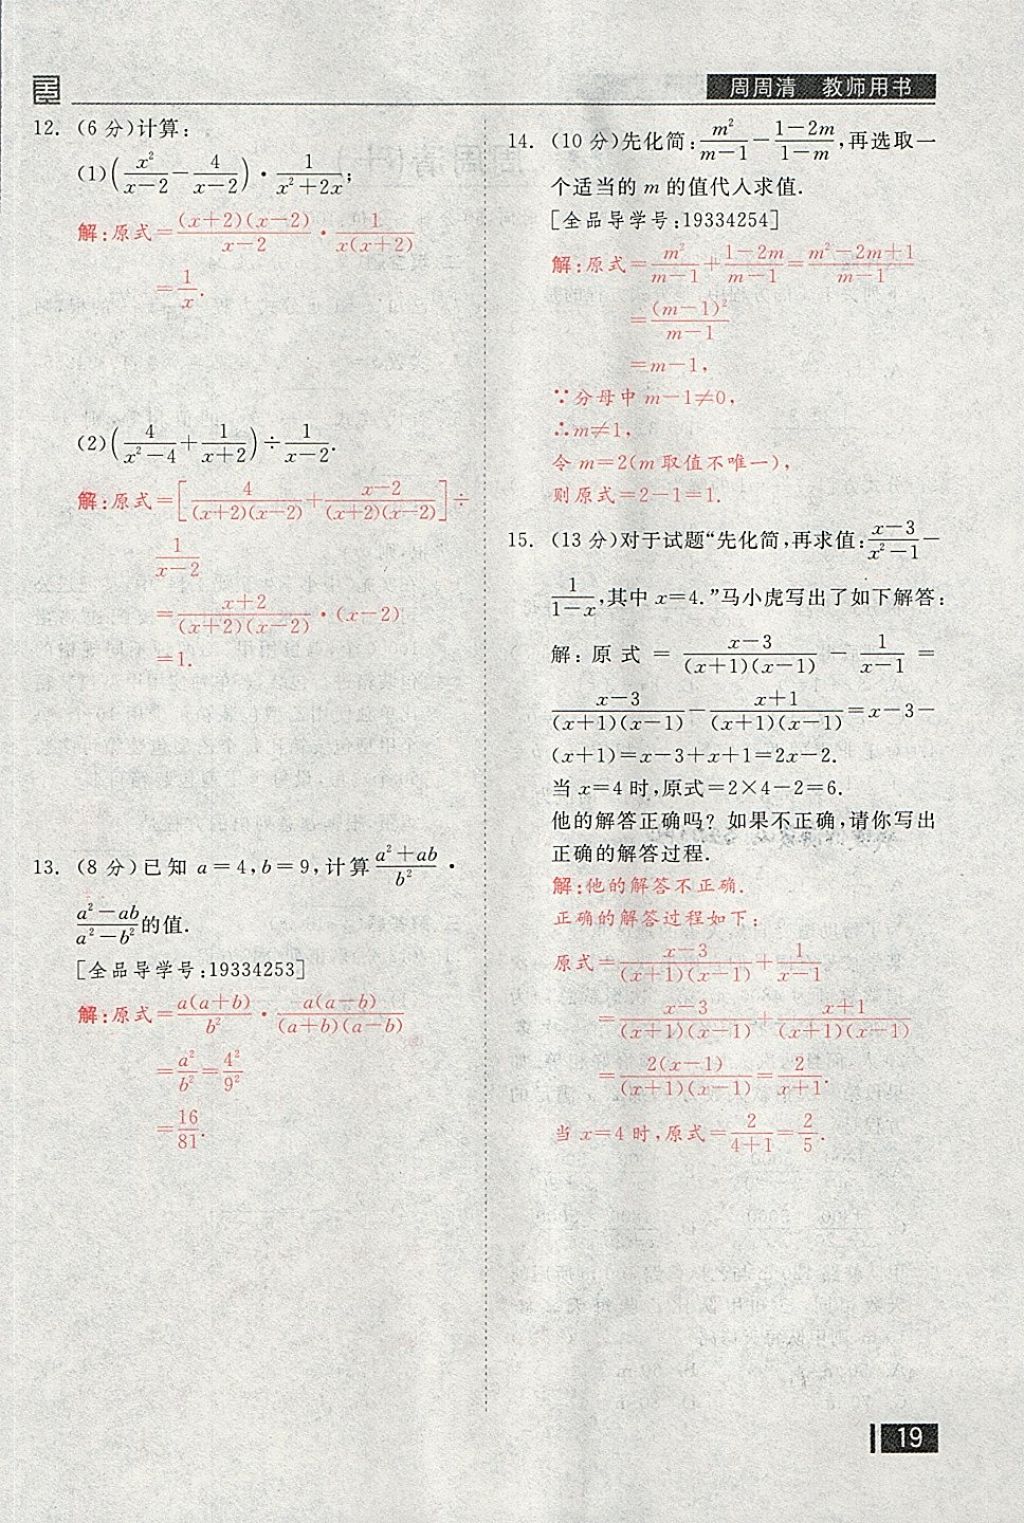 周周清 教师用书
12. (6 分)计算:
(1)(x²/(x-2) - 4/(x-2))·1/(x²+2x);
解:原式=(x+2)(x-2)/(x-2)·1/(x(x+2))
=1/x.
(2)(4/(x²-4)+1/(x+2))÷1/(x-2).
解:原式=[4/((x+2)(x-2))+(x-2)/((x+2)(x-2))]÷
1/(x-2)
=(x+2)/((x+2)(x-2))·(x-2)
=1.
13. (8 分)已知 a=4,b=9,计算(a²+ab)/b²·
(a²-ab)/(a²-b²)的值.
[全品导学号:19334253]
解:原式=a(a+b)/b²·a(a-b)/((a+b)(a-b))
=a²/b²=4²/9²
=16/81.
14. (10 分)先化简:m²/(m-1)-(1-2m)/(1-m),再选取一
个适当的 m 的值代入求值.
[全品导学号:19334254]
解:原式=m²/(m-1)+(1-2m)/(m-1)=(m²-2m+1)/(m-1)
=(m-1)²/(m-1)
=m-1,
∵分母中 m-1≠0,
∴m≠1,
令 m=2(m 取值不唯一),
则原式=2-1=1.
15. (13 分)对于试题“先化简,再求值:(x-3)/(x²-1)-
1/(1-x),其中 x=4.”马小虎写出了如下解答:
解:原式=(x-3)/((x+1)(x-1))-1/(x-1)=
(x-3)/((x+1)(x-1))-(x+1)/((x+1)(x-1))=x-3-
(x+1)=x-3+x+1=2x-2.
当 x=4 时,原式=2×4-2=6.
他的解答正确吗? 如果不正确,请你写出
正确的解答过程.
解:他的解答不正确.
正确的解答过程如下:
原式=(x-3)/((x+1)(x-1))+1/(x-1)
=(x-3)/((x+1)(x-1))+(x+1)/((x+1)(x-1))
=2(x-1)/((x+1)(x-1))=2/(x+1).
当 x=4 时,原式=2/(4+1)=2/5.
19